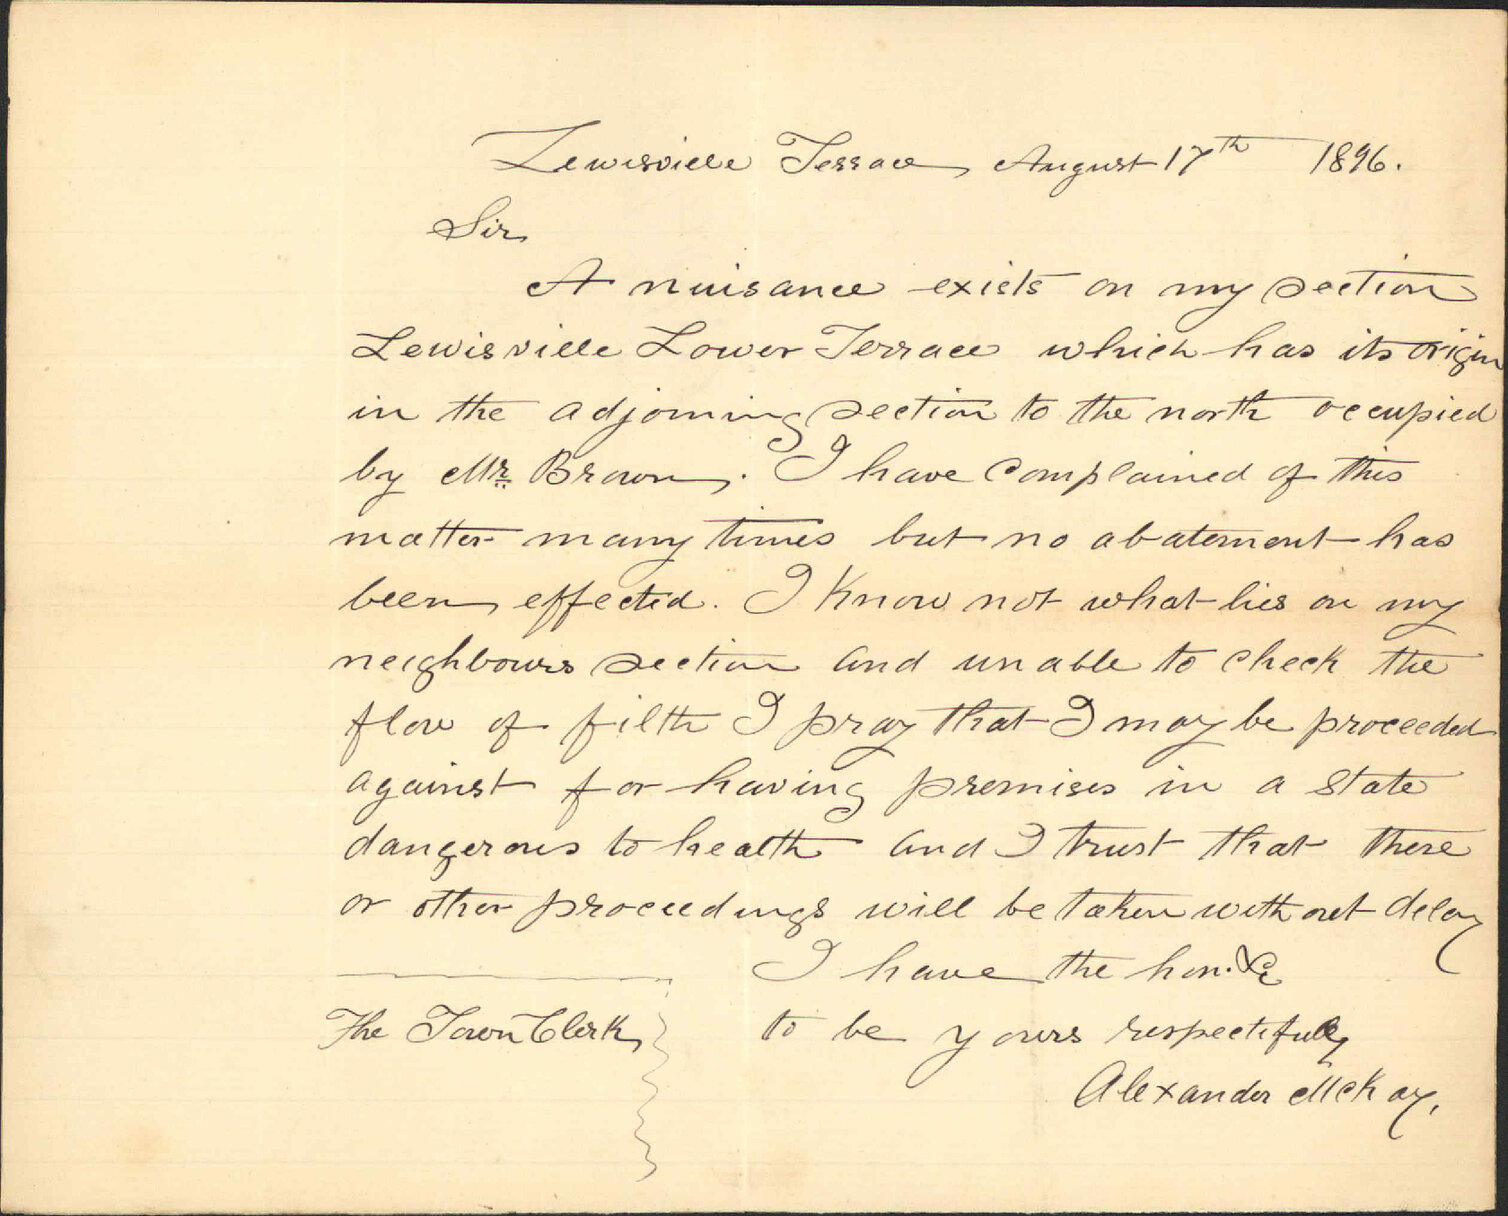 Lewisville Terrace, August 17th 1896.
Sir,
A nuisance exists on my section
Lewisville Lower Terrace which has its origin
in the adjoining section to the north occupied
by Mr. Brown. I have complained of this
matter many times but no abatement has
been effected. I know not what lies on my
neighbours section and unable to check the
flow of filth I pray that I may be proceeded
against for having premises in a state
dangerous to health and I trust that these
or other proceedings will be taken without delay
I have the hon. &c
The Town Clerk, to be yours respectfully
Alexander McKay.